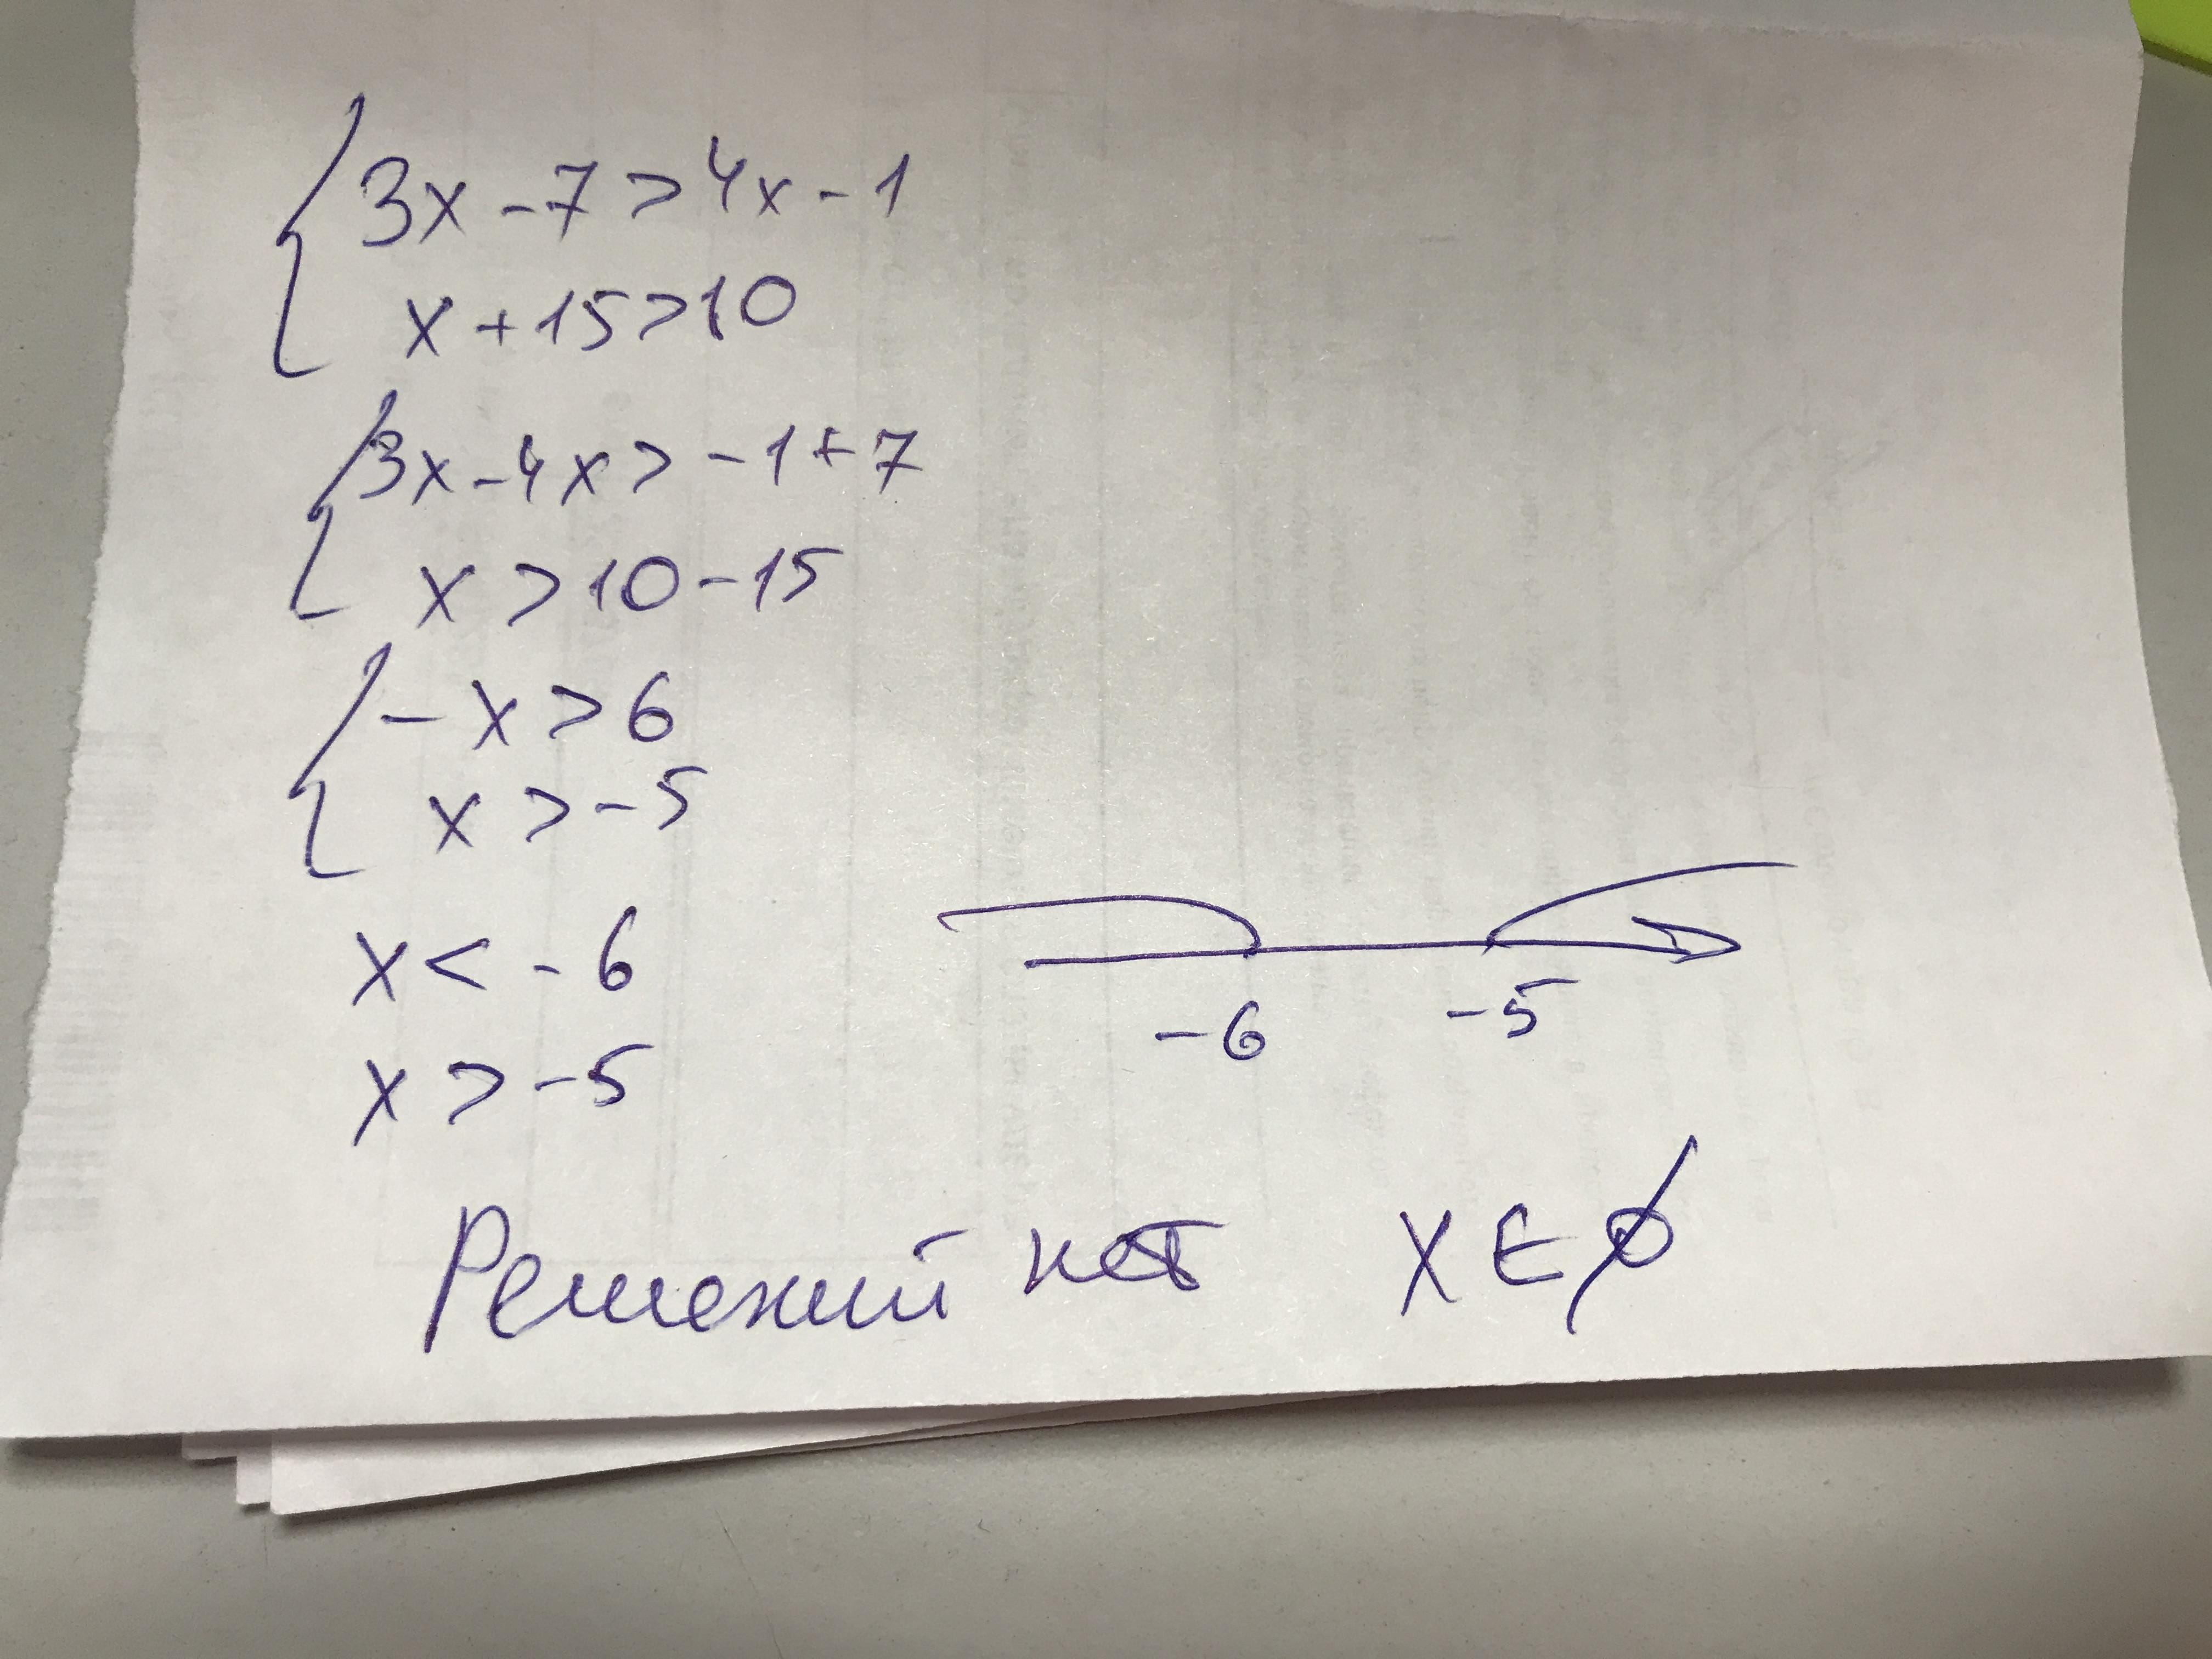 3x - 7 > 4x - 1
x + 15 > 10
3x - 4x > -1 + 7
x > 10 - 15
-x > 6
x > -5
x < -6
x > -5
-6 -5
Решений нет x ∈ ∅